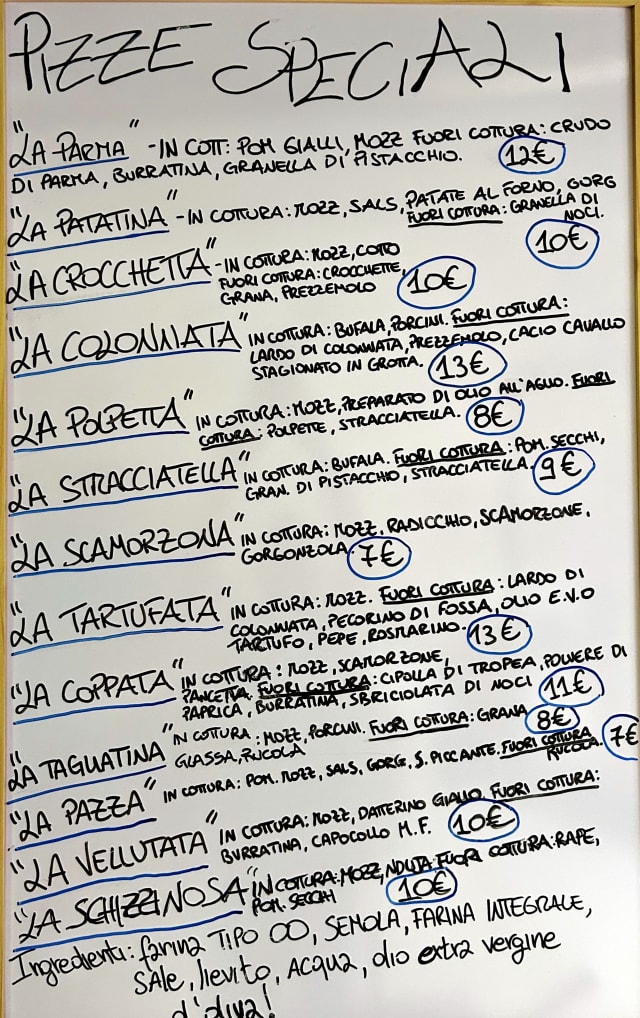 PIZZE SPECIALI
"LA PARMA" - IN COTT: POM GIALLI, MOZZ FUORI COTTURA: CRUDO
DI PARMA, BURRATINA, GRANELLA DI PISTACCHIO. 12€
"LA PATATINA" - IN COTTURA: MOZZ, SALS, PATATE AL FORNO, GORG
FUORI COTTURA: GRANELLA DI
NOCI. 10€
"LA CROCCHETTA" - IN COTTURA: MOZZ, COTTO
FUORI COTTURA: CROCCHETTE,
GRANA, PREZZEMOLO 10€
"LA COLONNATA" IN COTTURA: BUFALA, PORCINI. FUORI COTTURA:
LARDO DI COLONNATA, PREZZEMOLO, CACIO CAVALLO
STAGIONATO IN GROTTA. 13€
"LA POLPETTA" IN COTTURA: MOZZ, PREPARATO DI OLIO ALL'AGLIO. FUORI
COTTURA: POLPETTE, STRACCIATELLA. 8€
"LA STRACCIATELLA" IN COTTURA: BUFALA. FUORI COTTURA: POM. SECCHI,
GRAN. DI PISTACCHIO, STRACCIATELLA. 9€
"LA SCAMORZONA" IN COTTURA: MOZZ, RADICCHIO, SCAMORZONE,
GORGONZOLA. 7€
"LA TARTUFATA" IN COTTURA: MOZZ. FUORI COTTURA: LARDO DI
COLONNATA, PECORINO DI FOSSA, OLIO E.V.O
TARTUFO, PEPE, ROSMARINO. 13€
"LA COPPATA" IN COTTURA: MOZZ, SCAMORZONE,
PANCETTA. FUORI COTTURA: CIPOLLA DI TROPEA, POLVERE DI
PAPRICA, BURRATINA, SBRICIOLATA DI NOCI 11€
"LA TAGLIATINA" IN COTTURA: MOZZ, PORCINI. FUORI COTTURA: GRANA 8€
GLASSA, RUCOLA.
"LA PAZZA" IN COTTURA: POM. MOZZ, SALS, GORG, S. PICCANTE. FUORI COTTURA
RUCOLA. 7€
"LA VELLUTATA" IN COTTURA: MOZZ, DATTERINO GIALLO. FUORI COTTURA:
BURRATINA, CAPOCOLLO M.F. 10€
"LA SCHIZZINOSA" IN COTTURA: MOZZ, NDUJA. FUORI COTTURA: RAPE,
POM. SECCHI 10€
Ingredienti: farina TIPO 00, SEMOLA, FARINA INTEGRALE,
SALE, lievito, ACQUA, olio extra vergine
d'oliva!